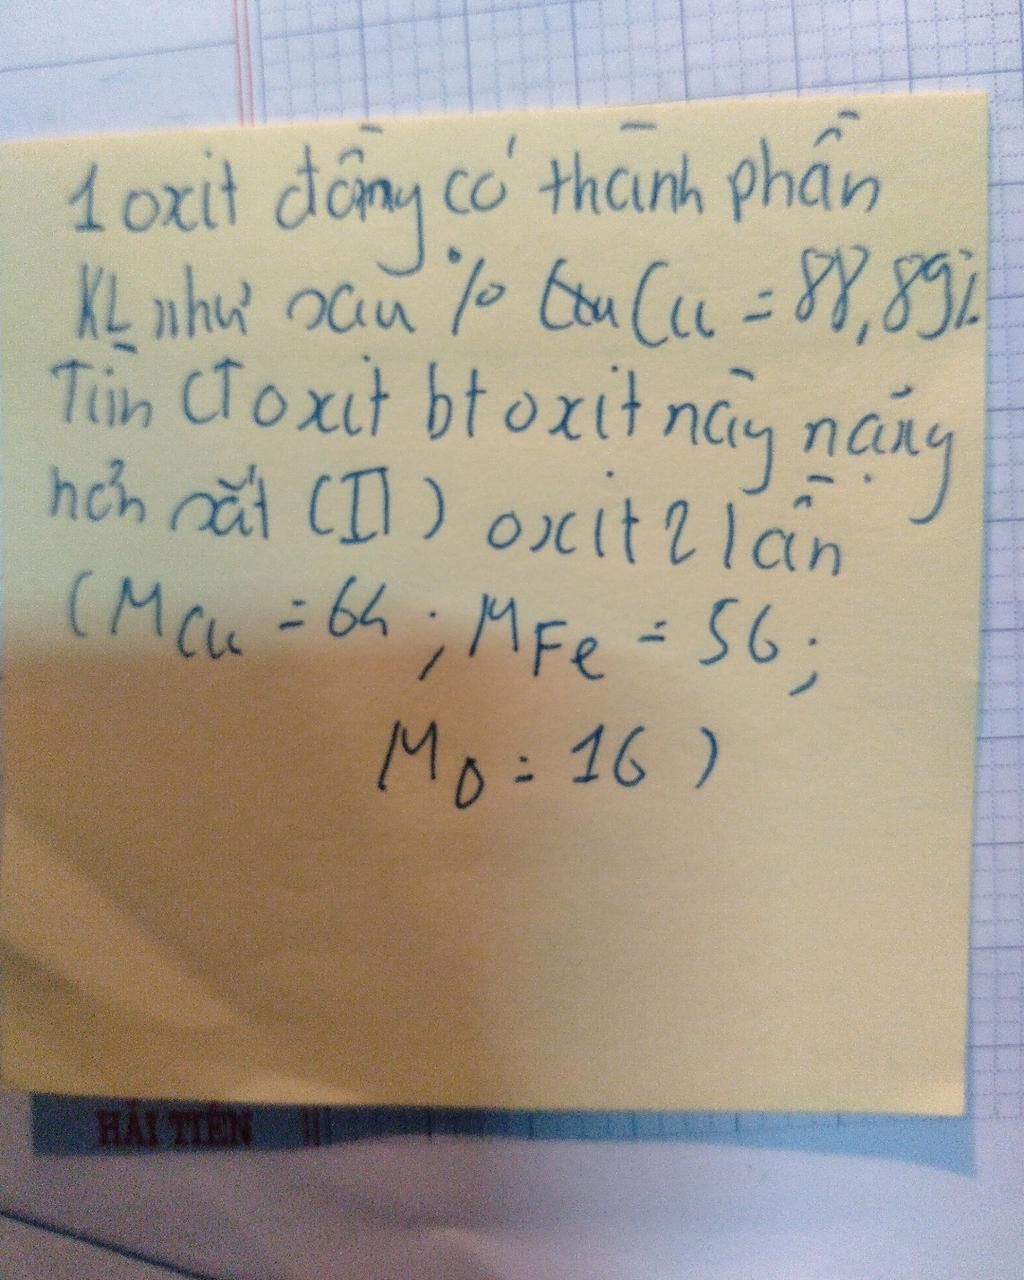 1 oxit đồng có thành phần
KL như sau % Cu = 88,89%
Tìm CT oxit bt oxit này nặng
hơn sắt (II) oxit 2 lần
(MCu = 64 ; MFe = 56 ;
MO = 16 )
HẢI TIẾN